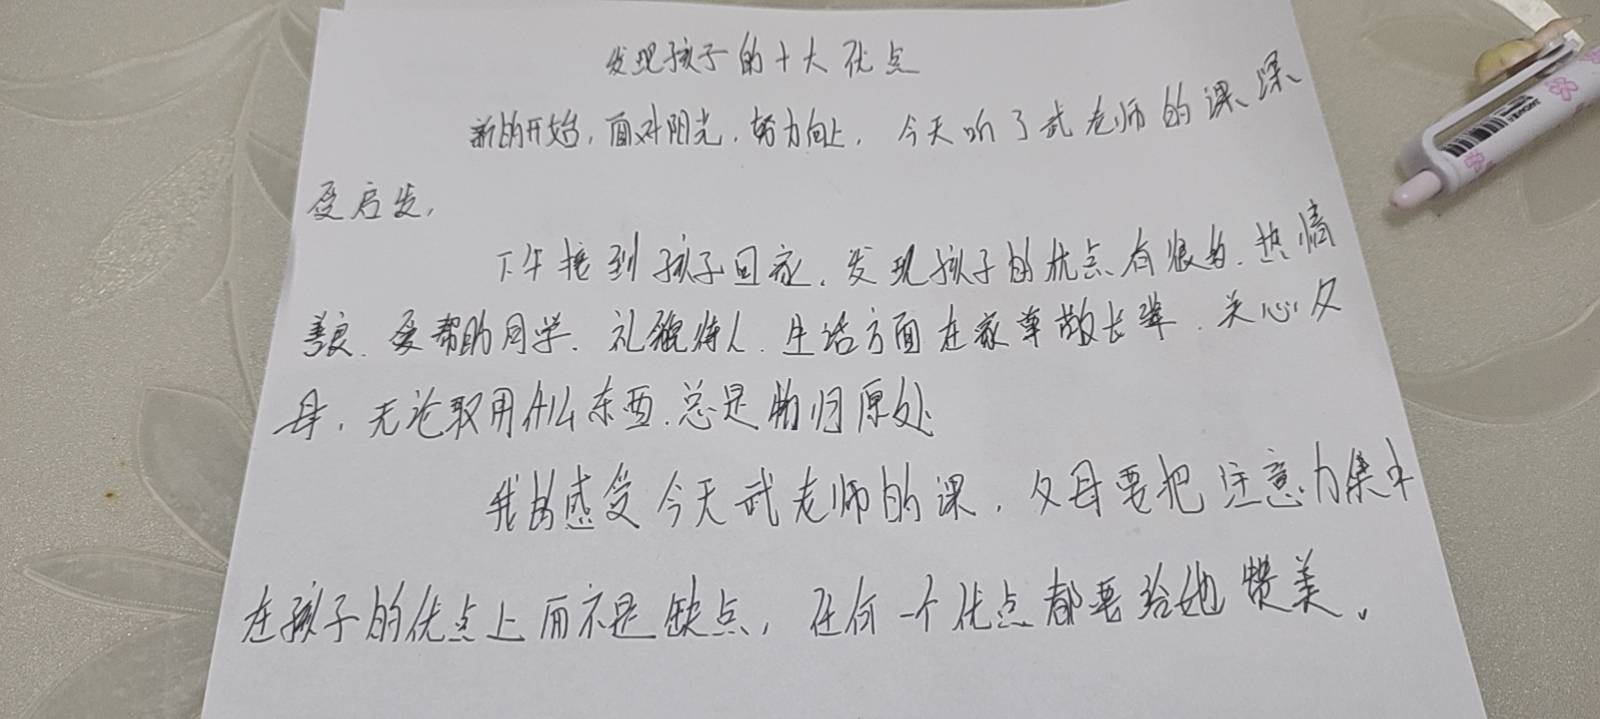 发现孩子的十大优点
新的开始,面对阳光,努力向上,今天听了武老师的课、深、
受启发,
下午接到孩子回家,发现孩子的优点有很多.热情
善良.爱帮助同学.礼貌待人.生活方面在家尊敬长辈.关心父
母,无论取用什么东西.总是物归原处
我的感受今天武老师的课,父母要把注意力集中
在孩子的优点上而不是缺点,任何一个优点都要给她赞美。